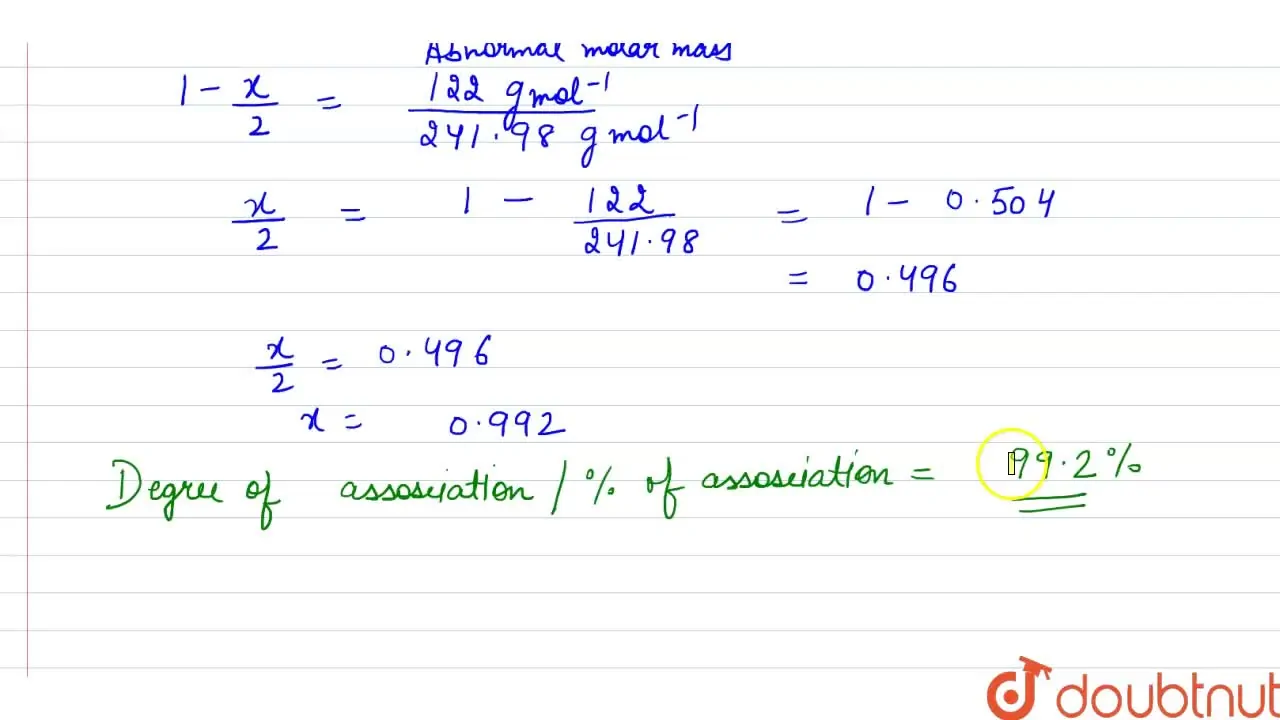 Abnormal molar mass
1 - x/2 = 122 g mol⁻¹ / 241.98 g mol⁻¹
x/2 = 1 - 122/241.98 = 1 - 0.504
= 0.496
x/2 = 0.496
x = 0.992
Degree of assosiation / % of assosiation = 99.2%
doubtnut